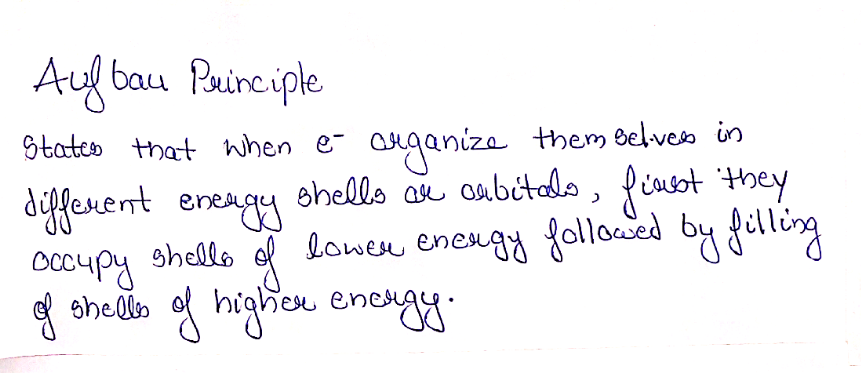 Aufbau Principle
States that when e⁻ organize themselves in
different energy shells or orbitals, first they
occupy shells of lower energy followed by filling
of shells of higher energy.